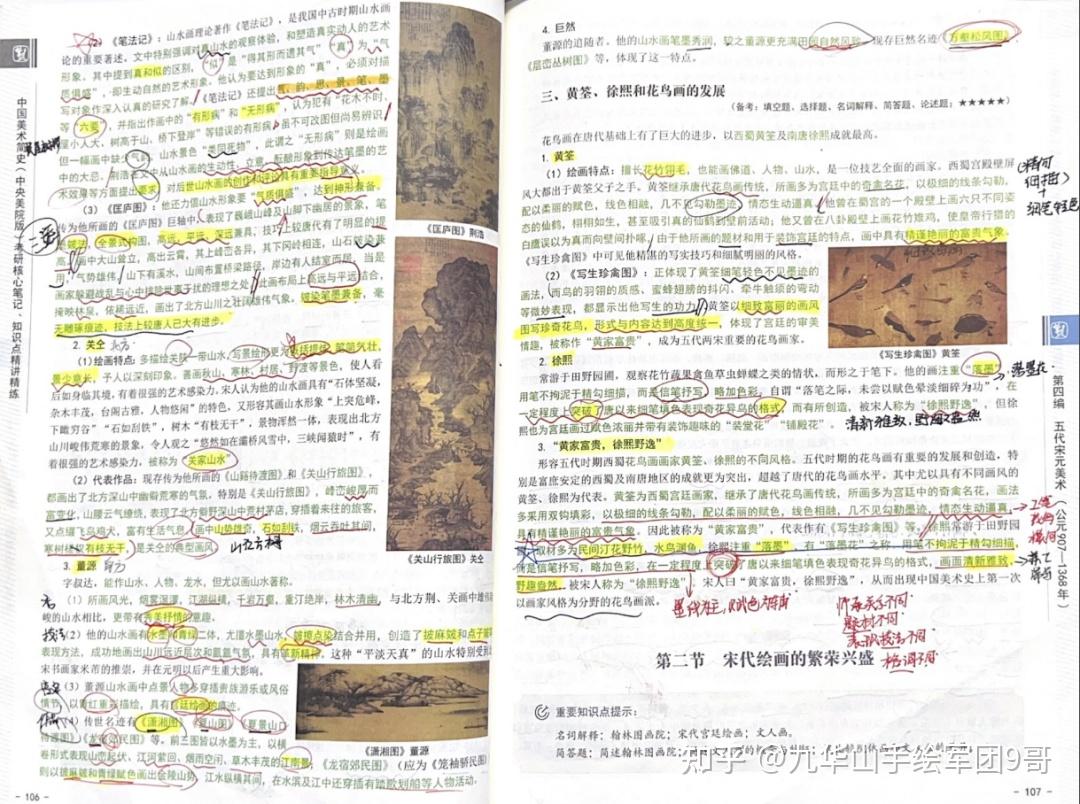 (2)《笔法记》：山水画理论著作《笔法记》，是我国中古时期山水画
论的重要著述。文中特别强调对真山水的观察体验，和塑造真实动人的艺术
形象。其中提到真和似的区别，“似”是“得其形而遗其气”“真”为“气
质俱盛”，即生动自然的艺术形象。他认为要达到形象的“真”，必须对描
写对象作深入认真的研究了解。《笔法记》还提出气、韵、思、景、笔、墨
等“六要”，并指出作画中的“有形病”和“无形病”，认为犯有“花木不时，
屋小人大，树高于山，桥下登岸”等错误的有形病，虽不可改图但尚易辨识
但一幅画中缺少气韵，山水景色“类同死物”，此谓之“无形病”则是绘画
中的大忌。荆浩在文中从山水画的生动性、立意、酝酿形象到传达笔墨的艺
术效等方面提出要求，对后世山水画的创作和评论具有重要指导意义。
(3)《匡庐图》：他还力倡山水形象要“气质俱盛”，达到神形兼备。
传为他所画的《匡庐图》巨轴中，表现了巍峨山峰及山脚下幽居的景象，笔
皴法，全景式构图，高远、平远、深远兼具，技巧较唐代有了明显的提
高。画中大山耸立，高出云霄，其上峰峦各异，其下冈岭相连，山石皴染兼
用，气势雄伟，山下有溪水，山间布置桥梁路径，岸边有人结室而居，当是
画家躲避战乱与心中排除世事干扰的理想之处。此画布局上高远与平远结合，
掩映林泉，依稀远近，画出了北方山川之壮阔雄伟气象。皴染笔墨兼备，毫
无雕琢痕迹，技法上较唐人已大有进步。
2. 关仝
(1)绘画特点：多描绘关陕一带山水，写景绘形更为简括提炼，笔简气壮，
景少意长，予人以深刻印象。善画秋山、寒林、村居、野渡等景色，使人看
后如身临其境，有着很强的艺术感染力，宋人认为他的山水画具有“石体坚凝，
杂木丰茂，台阁古雅，人物悠闲”的特色。又形容其画山水形象“上突危峰，
下瞰穷谷”“石如刮铁”，树木“有枝无干”，景物浑然一体，表现出北方
山川峻伟荒寒的景象，令人观之“悠然如在灞桥风雪中，三峡闻猿时”，有
着很强的艺术感染力，被称为“关家山水”
(2)代表作品：现存传为他所画的《山谿待渡图》和《关山行旅图》，
都画出了北方深山中幽僻荒寒的气氛，特别是《关山行旅图》，峰峦峻厚而
富变化，山腰云气缠绕，表现了北方僻野深山中荒村茅店，穿插着来往的旅客，
又点缀飞鸟鸡犬，富有生活气息，画中山势雄奇，石如刮铁，烟云吞吐其间，
寒树枯枝有枝无干，是关仝的典型画风。
3. 董源
字叔达，能作山水、人物、龙水，但尤以画山水著称。
(1)所画风光，烟雾溟濛，江湖纵横，千岩万壑，重汀绝岸，林木清幽，与北方荆、关画中雄伟
峻的山水相比，更带有秀美抒情的意趣。
(2)他的山水画有水墨和青绿二体，尤擅水墨山水，皴擦点染结合并用，创造了披麻皴和点子皴
表现方法，成功地画出山川远近层次和氤氲气氛，具有革新精神。这种“平淡天真”的山水特别受到
宋书画家米芾的推崇，并在元明以后产生重大影响。
(3)董源山水画中点景人物多穿插贵族游乐或风俗
情节，以青红重彩描绘，具有宫廷绘画的痕迹。
(4)传世名迹有《潇湘图》《夏山图》《夏景山口
待渡图》《龙宿郊民图》等，前三图皆以水墨为主，以横
卷形式表现山峦起伏、江河萦回、烟雨空闲、草木丰茂的江南景，《龙宿郊民图》（应为《笼袖骄民图》
则以披麻皴和青绿赋色画出金陵山势，江水纵横其间，在水滨及江中还穿插有踏歌划船等人物活动。
- 106 -
中国美术简史（中央美院版）考研核心笔记、知识点精讲精练
《匡庐图》荆浩
《关山行旅图》关仝
《潇湘图》董源
4. 巨然
董源的追随者。他的山水画笔墨秀润，较之董源更充满田园自然风貌，现存巨然名迹《万壑松风图》、
《层峦丛树图》等，体现了这一特点。
三、黄筌、徐熙和花鸟画的发展
（备考：填空题，选择题，名词解释、简答题、论述题：★★★★★）
花鸟画在唐代基础上有了巨大的进步，以西蜀黄筌及南唐徐熙成就最高。
1. 黄筌
(1)绘画特点：擅长花竹翎毛，也能画佛道、人物、山水，是一位技艺全面的画家。西蜀宫殿壁屏
风大都出于黄筌父子之手。黄筌继承唐代花鸟画传统，所画多为宫廷中的奇禽名花，以极细的线条勾勒，
配以柔丽的赋色，线色相融，几不见勾勒墨迹，情态生动逼真。他曾在蜀宫的一个殿壁上画六只不同姿
态的仙鹤，栩栩如生，甚至吸引真的仙鹤到壁前活动；他又曾在八卦殿壁上画花竹雉鸡，使皇帝行猎的
白鹰误以为真而向壁间扑啄，由于他所画的题材和用于装饰宫廷的特点，画中具有精谨艳丽的富贵气象。
《写生珍禽图》中可见他精湛的写实技巧和细腻明丽的风格。
(2)《写生珍禽图》：正体现了黄筌细笔轻色不见墨迹的
画法，而鸟的羽羽的质感、蜜蜂翅膀的抖闪、牵牛触须的弯动
等微妙表现，都显示出他写生的功力，黄筌以细致富丽的画风
图写珍奇花鸟，形式与内容达到高度统一，体现了宫廷的审美
情趣，被称作“黄家富贵”，成为五代两宋重要的花鸟画家。
《写生珍禽图》黄筌
2. 徐熙
常游于田野园圃，观察花竹蔬果禽鱼草虫蝉蝶之类的情状，而形之于笔下。他的画注重“落墨”，
用笔不拘泥于精勾细描，而是信笔抒写，略加色彩，自谓“落笔之际，未尝以赋色晕淡细碎为功”，在
一定程度上突破了唐以来细笔填色表现奇花异鸟的格式，而有所创造，被宋人称为“徐熙野逸”，但徐
熙也为宫廷画过赋色浓丽并带有装饰趣味的“装堂花”“铺殿花”。
清新雅致，野趣盎然
3. “黄家富贵，徐熙野逸”
形容五代时期西蜀花鸟画画家黄筌、徐熙的不同风格。五代时期的花鸟画有重要的发展和创造，特
别是富庶安定的西蜀及南唐地区的成就更为突出，超越了唐代的花鸟画水平。其中尤以具有不同画风的
黄筌、徐熙为代表。黄筌为西蜀宫廷画家，继承了唐代花鸟画传统，所画多为宫廷中的奇禽名花，画法
多采用双钩填彩，以极细的线条勾勒，配以柔丽的赋色，线色相融，几不见勾勒墨迹，情态生动逼真，
具有精谨艳丽的富贵气象。因此被称为“黄家富贵”，代表作有《写生珍禽图》等。徐熙常游于田野园
圃，取材多为民间汀花野竹，水鸟渊鱼，徐熙注重“落墨”，有“落墨花”之称，用笔不拘泥于精勾细描，
而是信笔抒写，略加色彩，在一定程度上突破了唐以来细笔填色表现奇花异鸟的格式，画面清新雅致，
野趣盎然，被宋人称为“徐熙野逸”，宋人曰“黄家富贵，徐熙野逸”，从而出现中国美术史上第一次
以画家风格为分野的花鸟画派。
题材不同
表现技法不同
格调不同
第二节 宋代绘画的繁荣兴盛
重要知识点提示：
名词解释：翰林图画院；宋代宫廷绘画；文人画。
简答题：简述翰林图画院
第四编 五代宋元美术（公元907-1368年）
- 107 -
知乎 @九华山手绘军团9哥